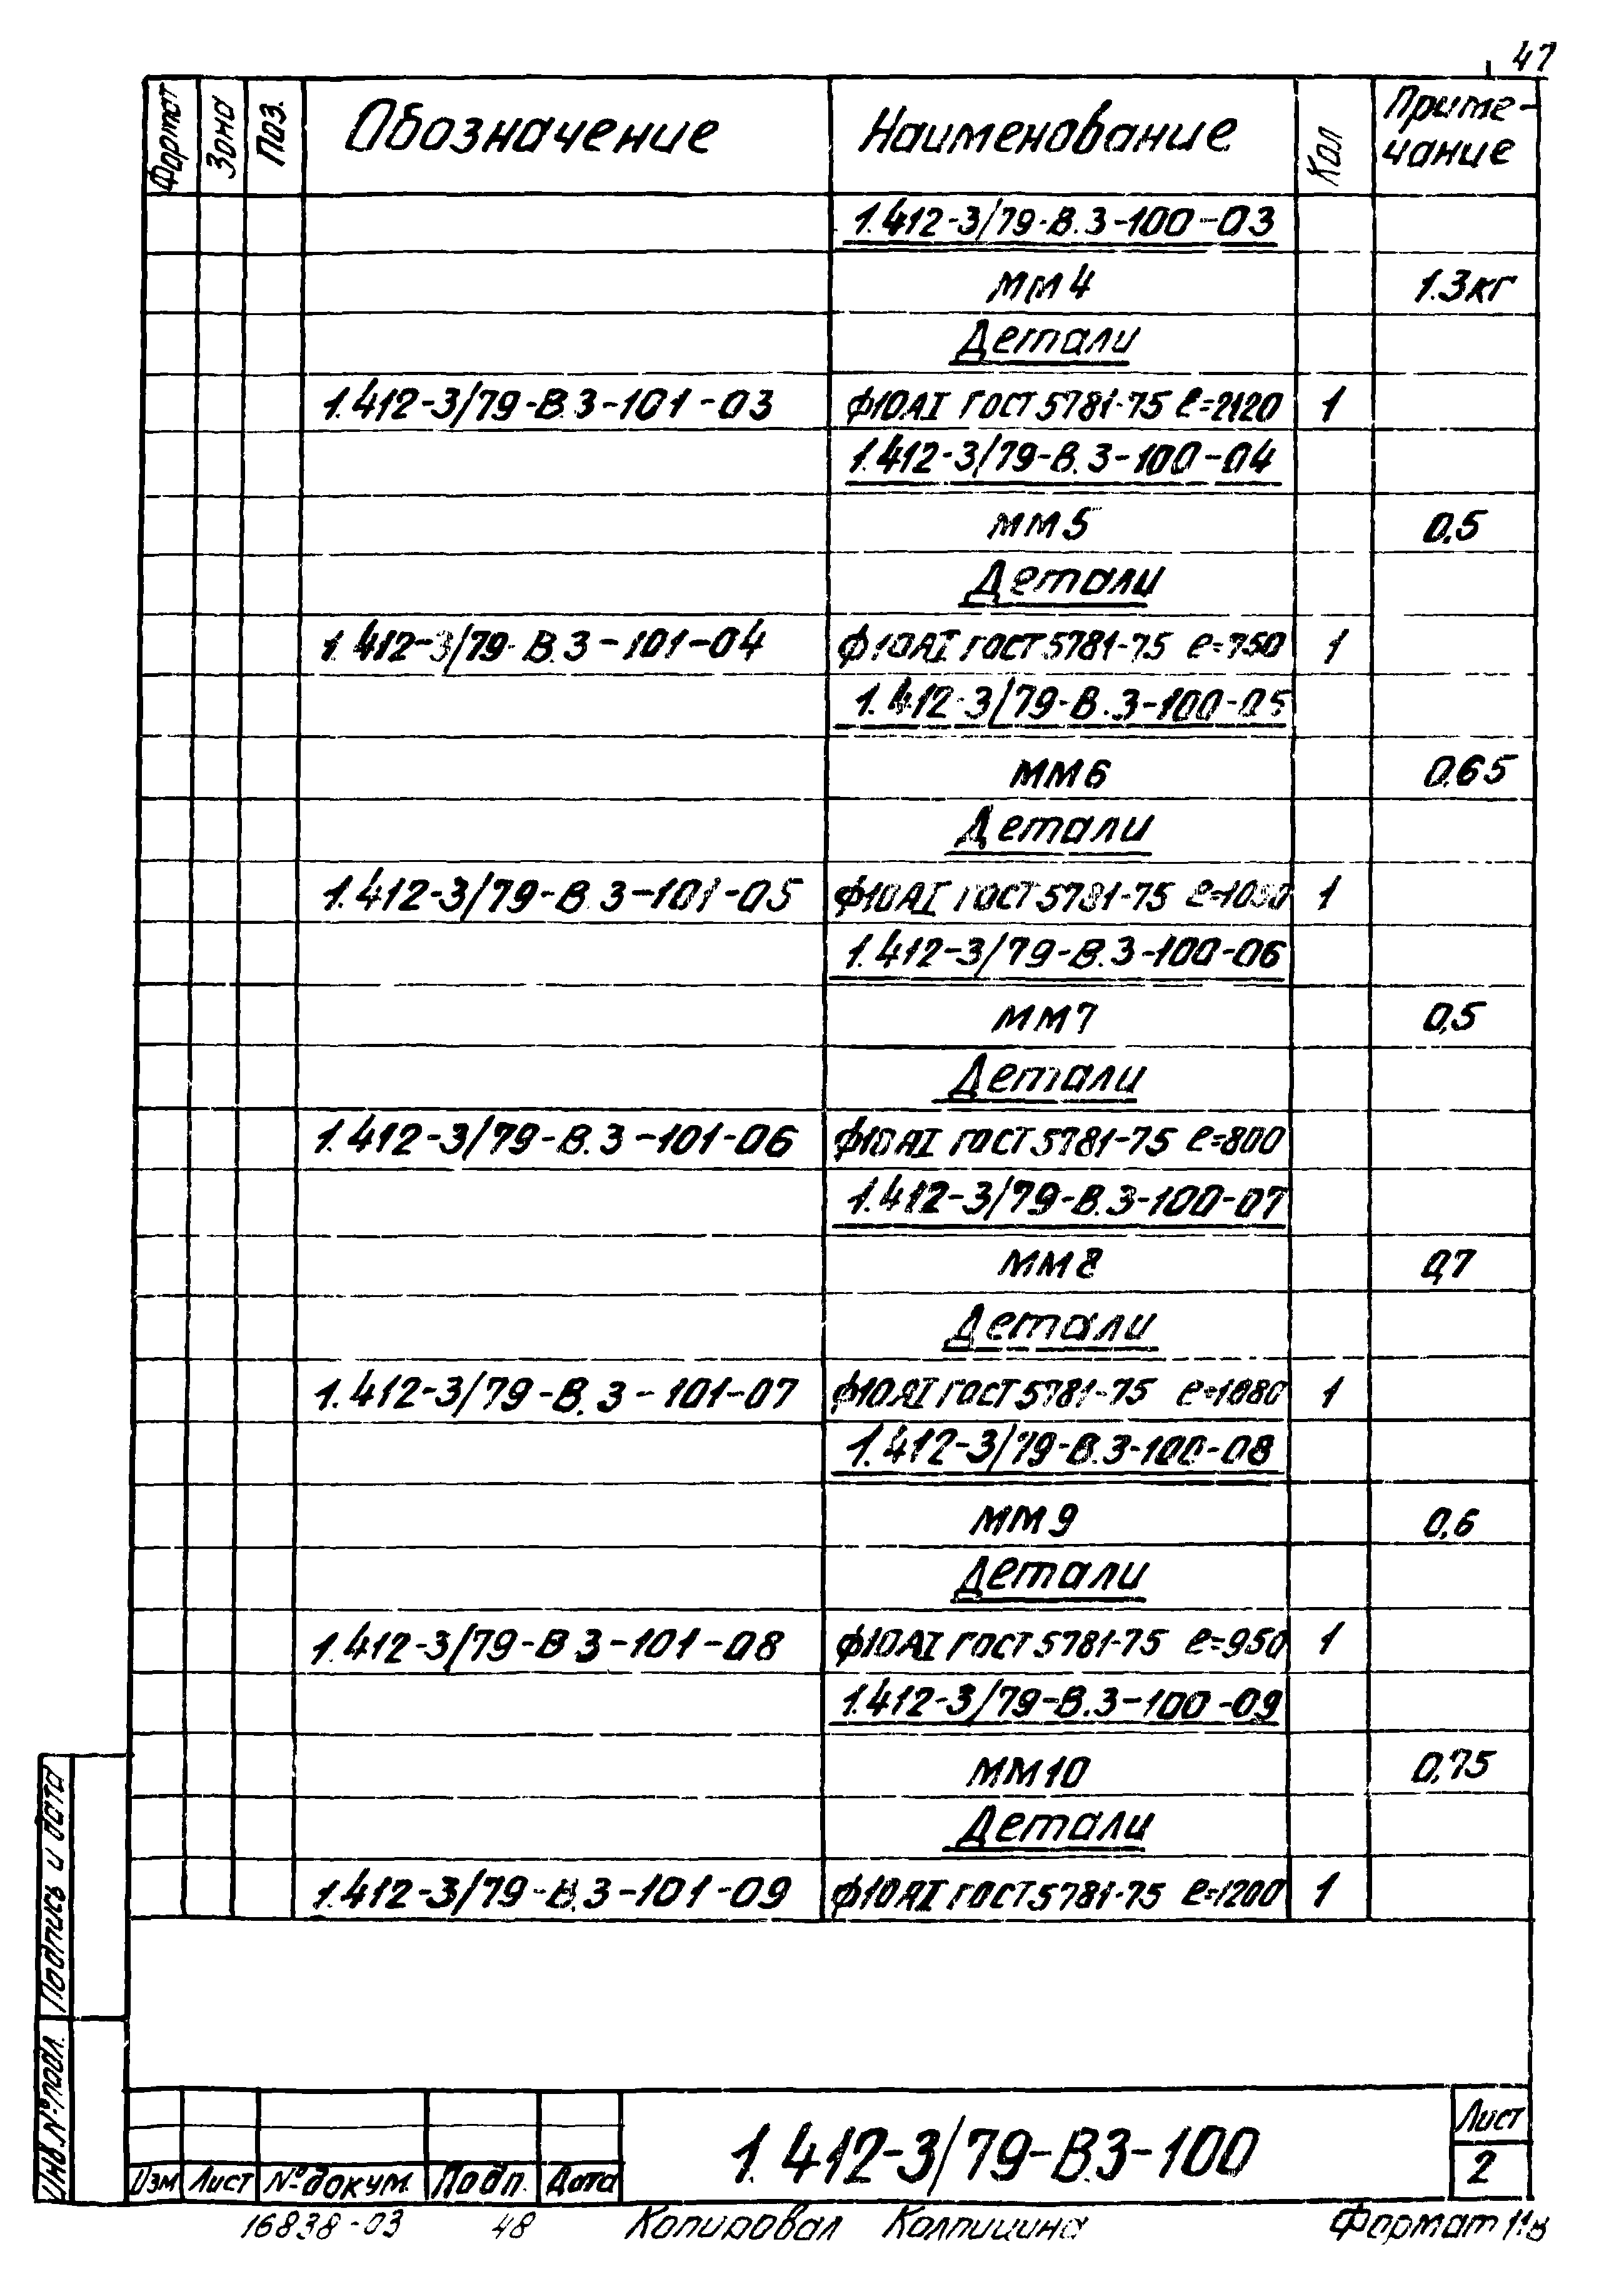 47
Формат Зона Поз. Обозначение Наименование Кол Приме-
чание
1.412-3/79-В.3-100-03
ММ4 1.3кг
Детали
1.412-3/79-В.3-101-03 ф10АI ГОСТ 5781-75 ℓ=2120 1
1.412-3/79-В.3-100-04
ММ5 0,5
Детали
1.412-3/79-В.3-101-04 ф10АI ГОСТ 5781-75 ℓ=750 1
1.412-3/79-В.3-100-05
ММ6 0,65
Детали
1.412-3/79-В.3-101-05 ф10АI ГОСТ 5781-75 ℓ=1050 1
1.412-3/79-В.3-100-06
ММ7 0,5
Детали
1.412-3/79-В.3-101-06 ф10АI ГОСТ 5781-75 ℓ=800
1.412-3/79-В.3-100-07
ММ8 0,7
Детали
1.412-3/79-В.3-101-07 ф10АI ГОСТ 5781-75 1
1.412-3/79-В.3-100-08
ММ9 0,6
Детали
1.412-3/79-В 3-101-08 ф10АI ГОСТ 5781-75 ℓ=950 1
1.412-3/79-В.3-100-09
ММ10 0,75
Детали
1.412-3/79-В.3-101-09 ф10АI ГОСТ 5781-75 ℓ=1200 1
Подпись и дата
Инв.№подл.
Изм Лист №докум. Подп. Дата
1.412-3/79-В.3-100
Лист
2
16838-03 48 Копировал Колпицина Формат 11в